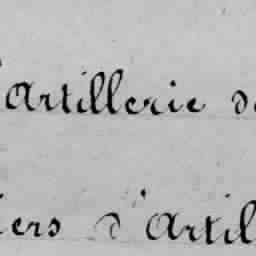 'artillerie de
iers d'artil